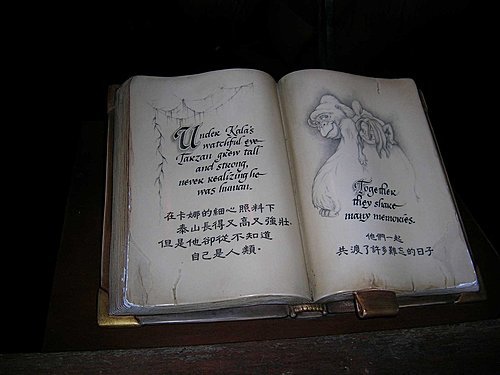 Under Kala's
watchful eye
Tarzan grew tall
and strong,
never realizing he
was human.
在卡娜的細心照料下
泰山長得又高又強壯.
但是他卻從不知道
自己是人類.
Together
they share
many memories.
他們一起
共渡了許多難忘的日子